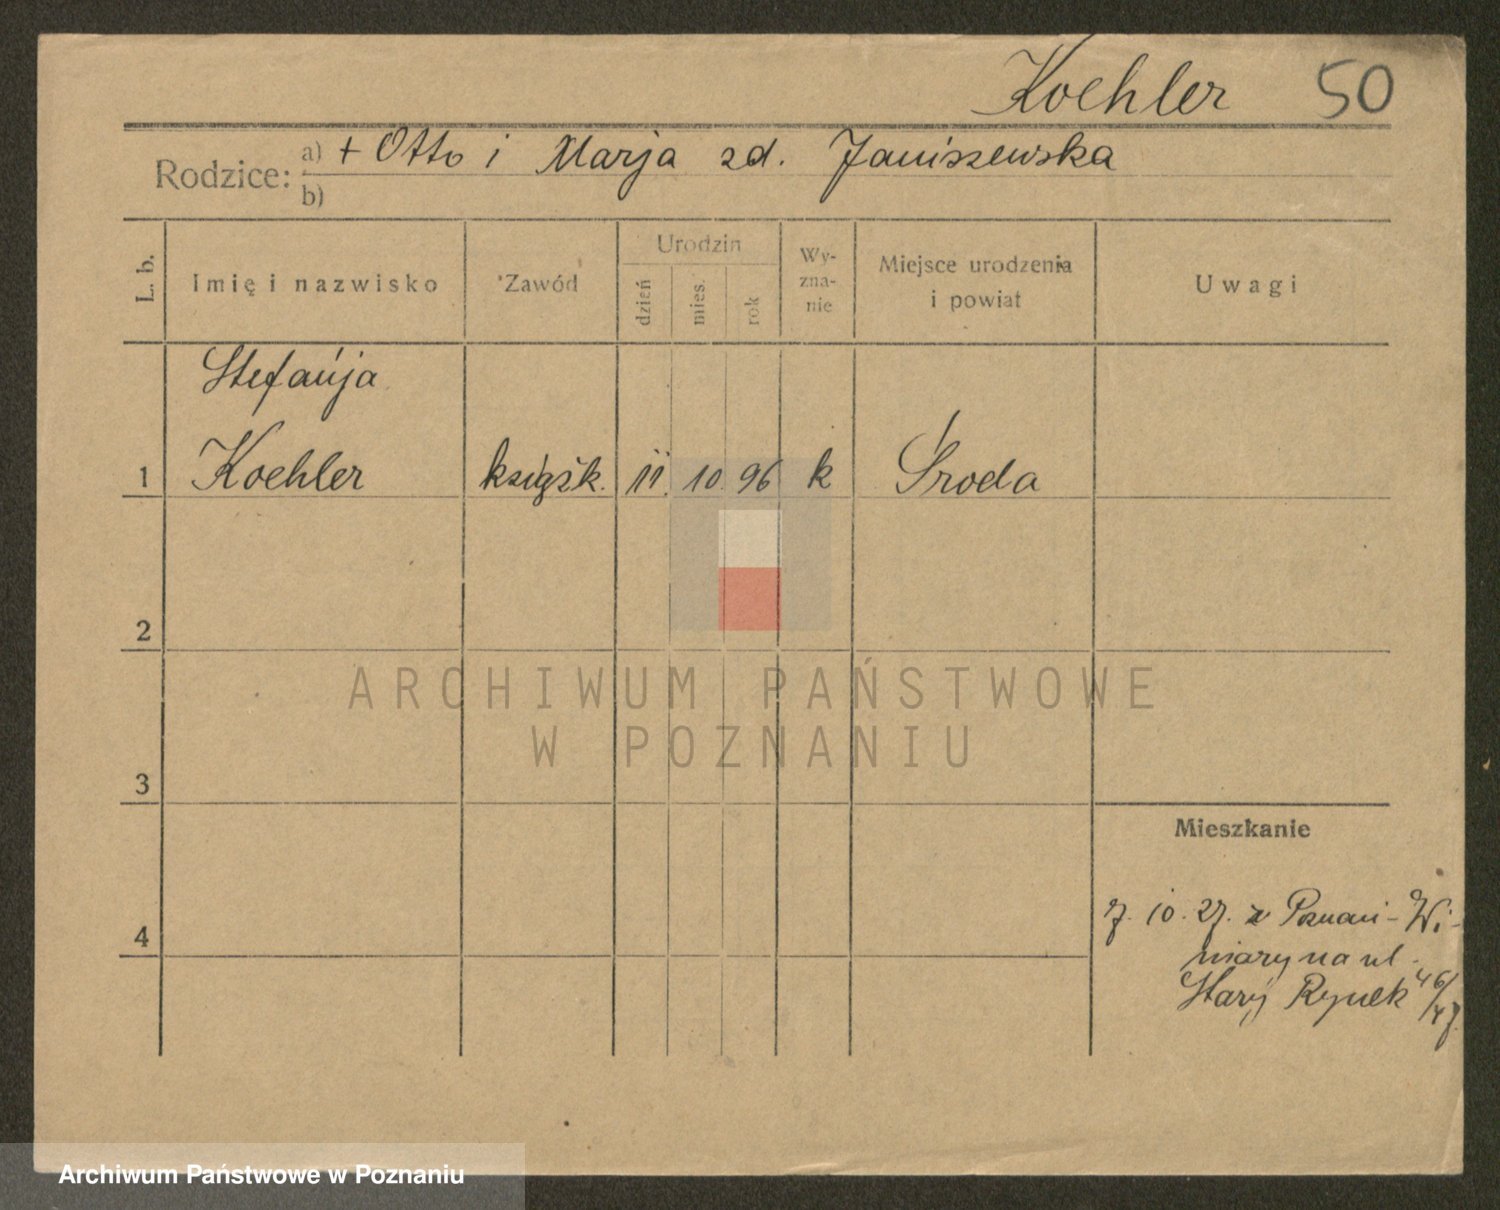 Koehler 50
Rodzice: a) + Otto i Marja zd. Janiszewska
b)
L. b. Imię i nazwisko Zawód Urodzin dzień mies. rok Wy-zna-nie Miejsce urodzenia i powiat Uwagi
Stefańja
1 Koehler książk. 11. 10. 96 k Środa
2
ARCHIWUM PAŃSTWOWE
W POZNANIU
3
Mieszkanie
4
7. 10. 27. z Poznań-Wi-
niary na ul.
Stary Rynek 46/47
Archiwum Państwowe w Poznaniu